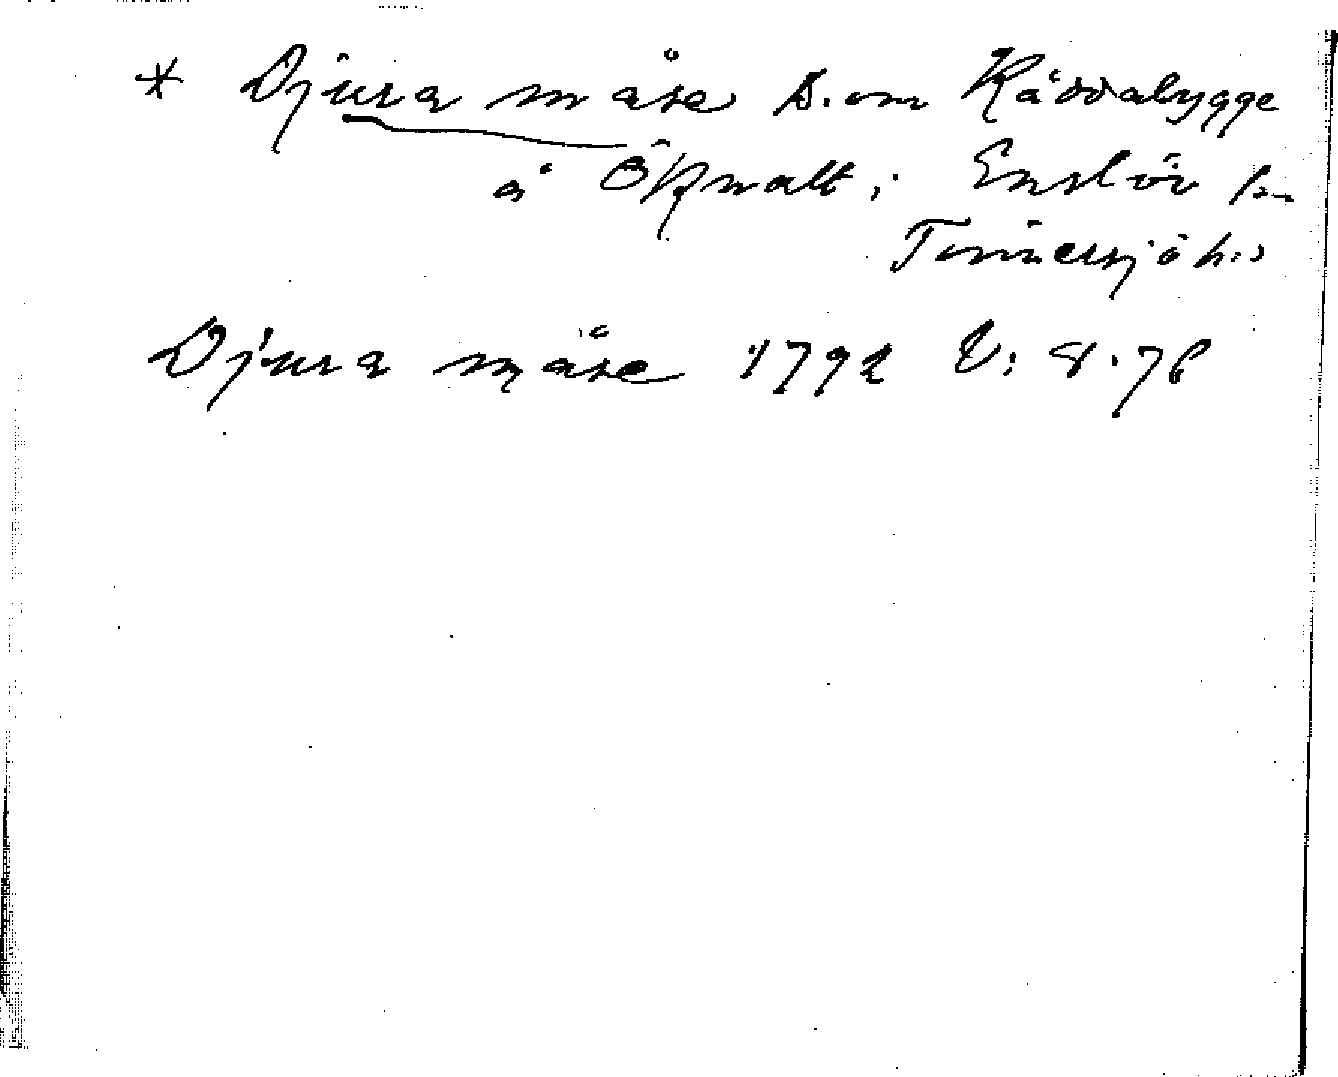 * Djura måse S. om Råddabygge
å Öknalt i Enslöv sn
Tönnersjö h:d
Djura måse 1792 E: 8.76